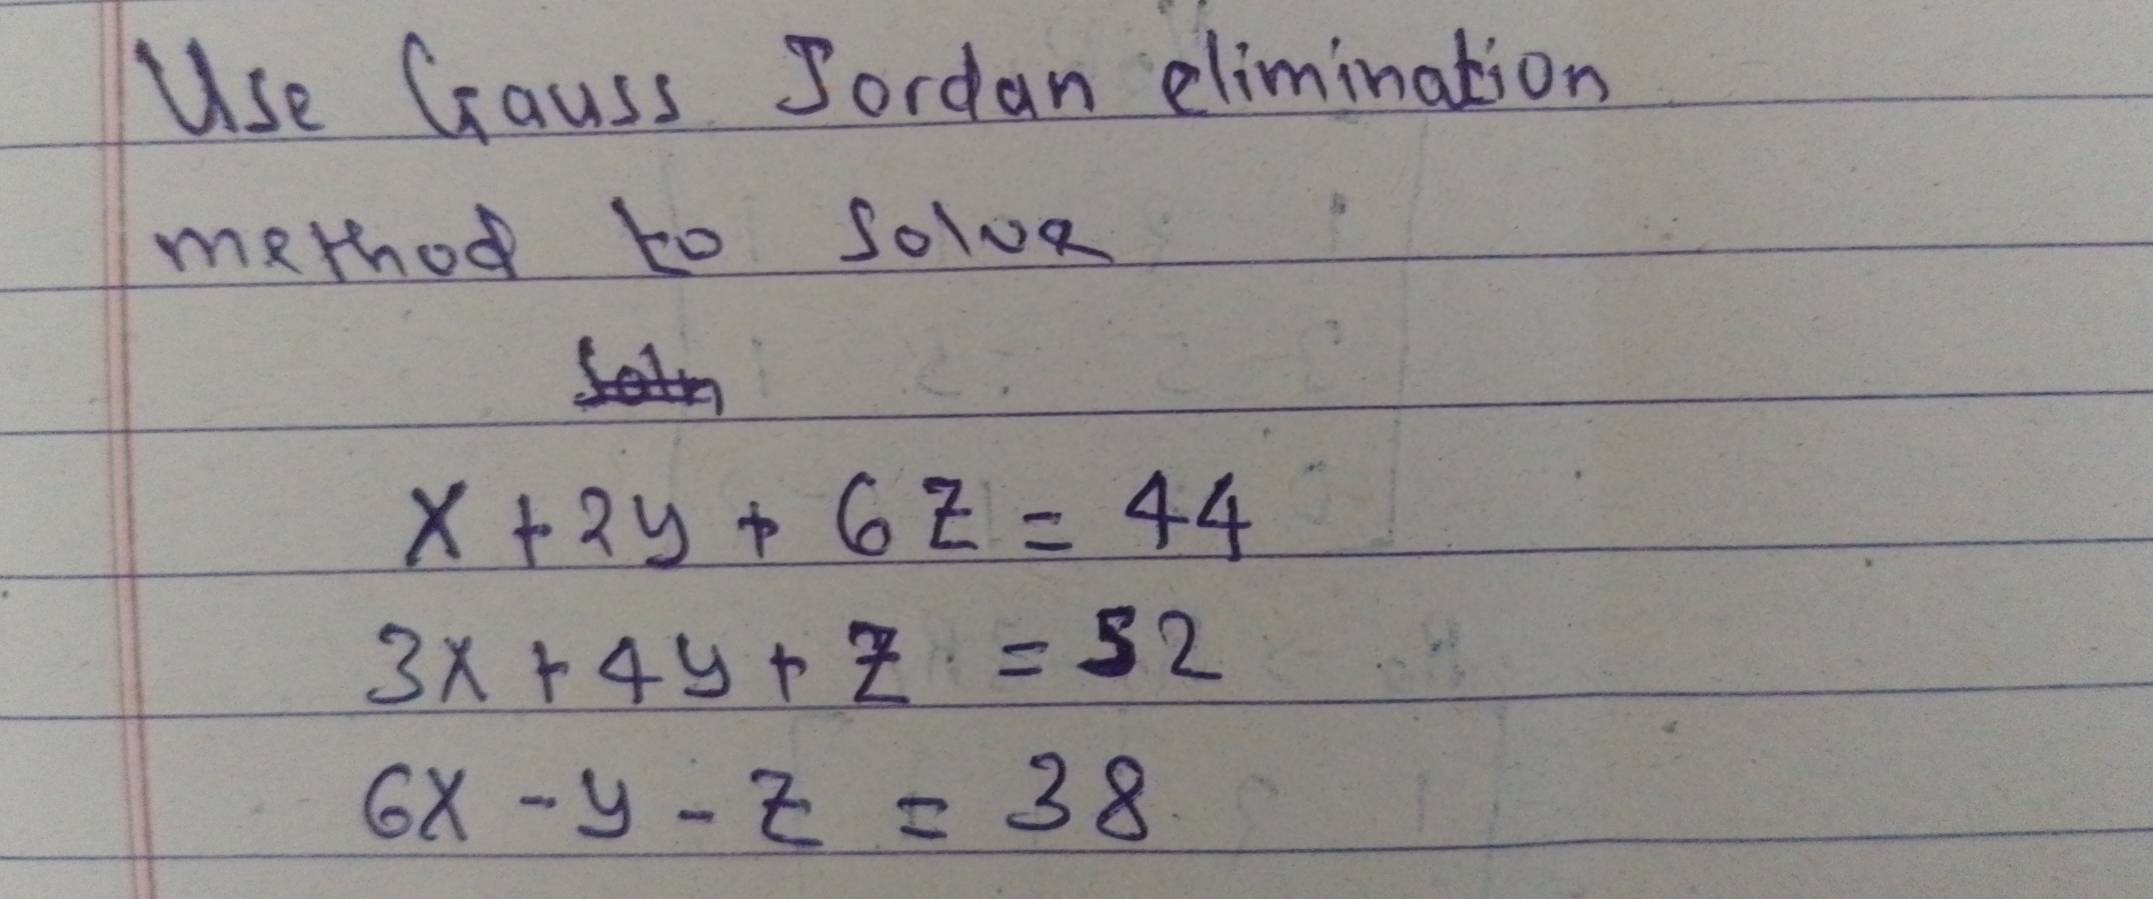 Use Gauss Jordan elimination
method to solve
Soln
x + 2y + 6z = 44
3x + 4y + z = 52
6x - y - z = 38